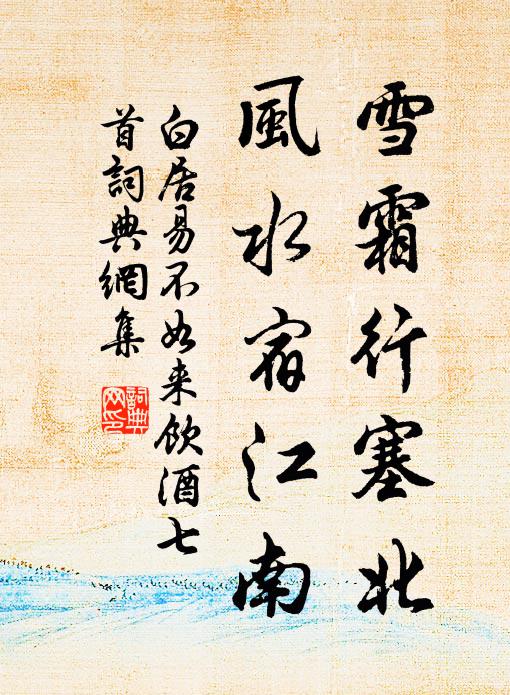 雪霜行塞北
風水宿江南
白居易不如来飲酒七
首詞典網集
詞典
网印